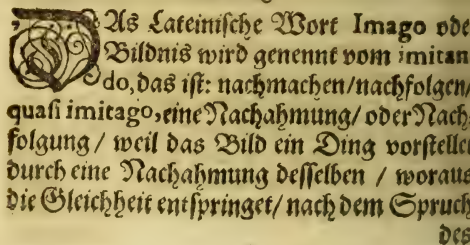 DAs Lateinische Wort Imago ode
Bildnis wird genennt vom imitan
do, das ist: nachmachen/nachfolgen/
quasi imitago, eine Nachahmung/ oder Nach
folgung / weil das Bild ein Ding vorstellet
durch eine Nachahmung desselben / woraus
die Gleichheit entspringet/ nach dem Spruch
des